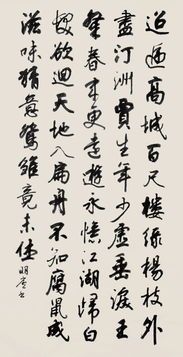 迢遞高城百尺樓綠楊枝外
盡汀洲賈生年少虛垂淚王
粲春來更遠遊永憶江湖歸白
髮欲迴天地入扁舟不知腐鼠成
滋味猜意鴛雛竟未休
明